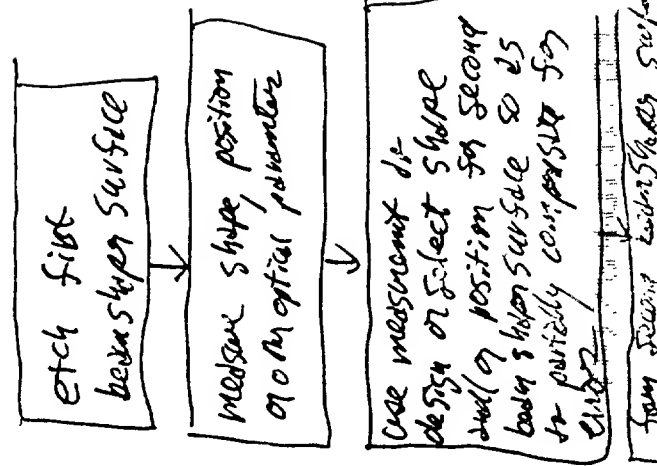 etch first
beam shaper surface
measure shape, position
optical parameter
use measurement to
design or select shape
and/or position for second
beam shaper surface so as
to partially compensate for
error
second beam shaper